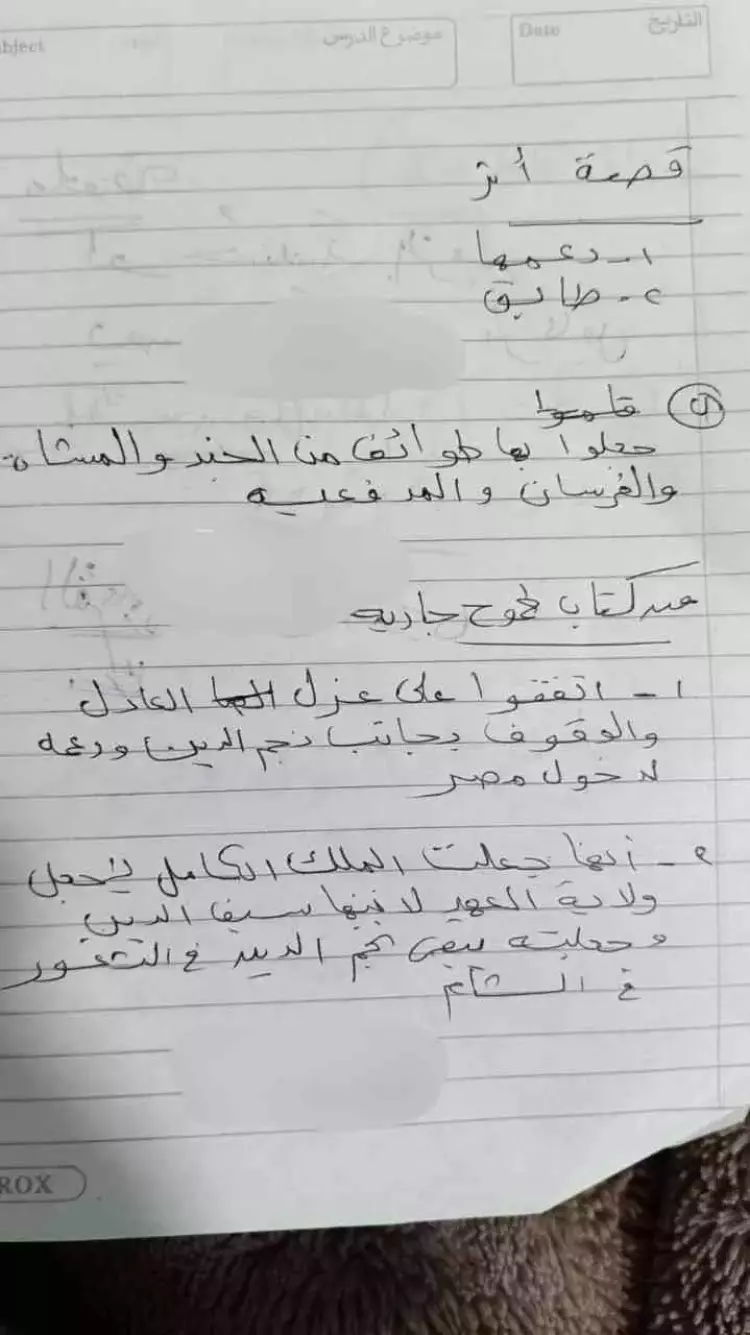 Subject موضوع الدرس
Date التاريخ
قصة أثر
١- دعمها
٢- طابق
قاموا
جعلوا بها طوائف من الجند والمشاة
والفرسان والمدفعيه
عند كتاب طموح جاريه
١- اتفقوا على عزل العادل
والوقوف بجانب نجم الدين ودعمه
لدخول مصر
٢- أنها جعلت الملك الكامل يجعل
ولاية العهد لابنها سيف الدين
وجعلته ينفى نجم الدين في الثغور
في الشام
ROX